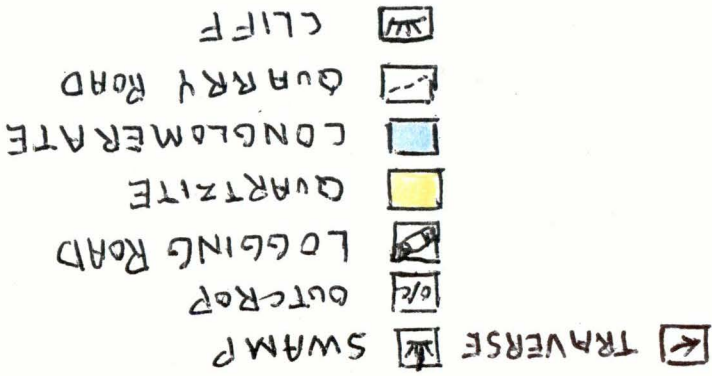 TRAVERSE SWAMP
o/c OUTCROP
LOGGING ROAD
QUARTZITE
CONGLOMERATE
QUARRY ROAD
CLIFF